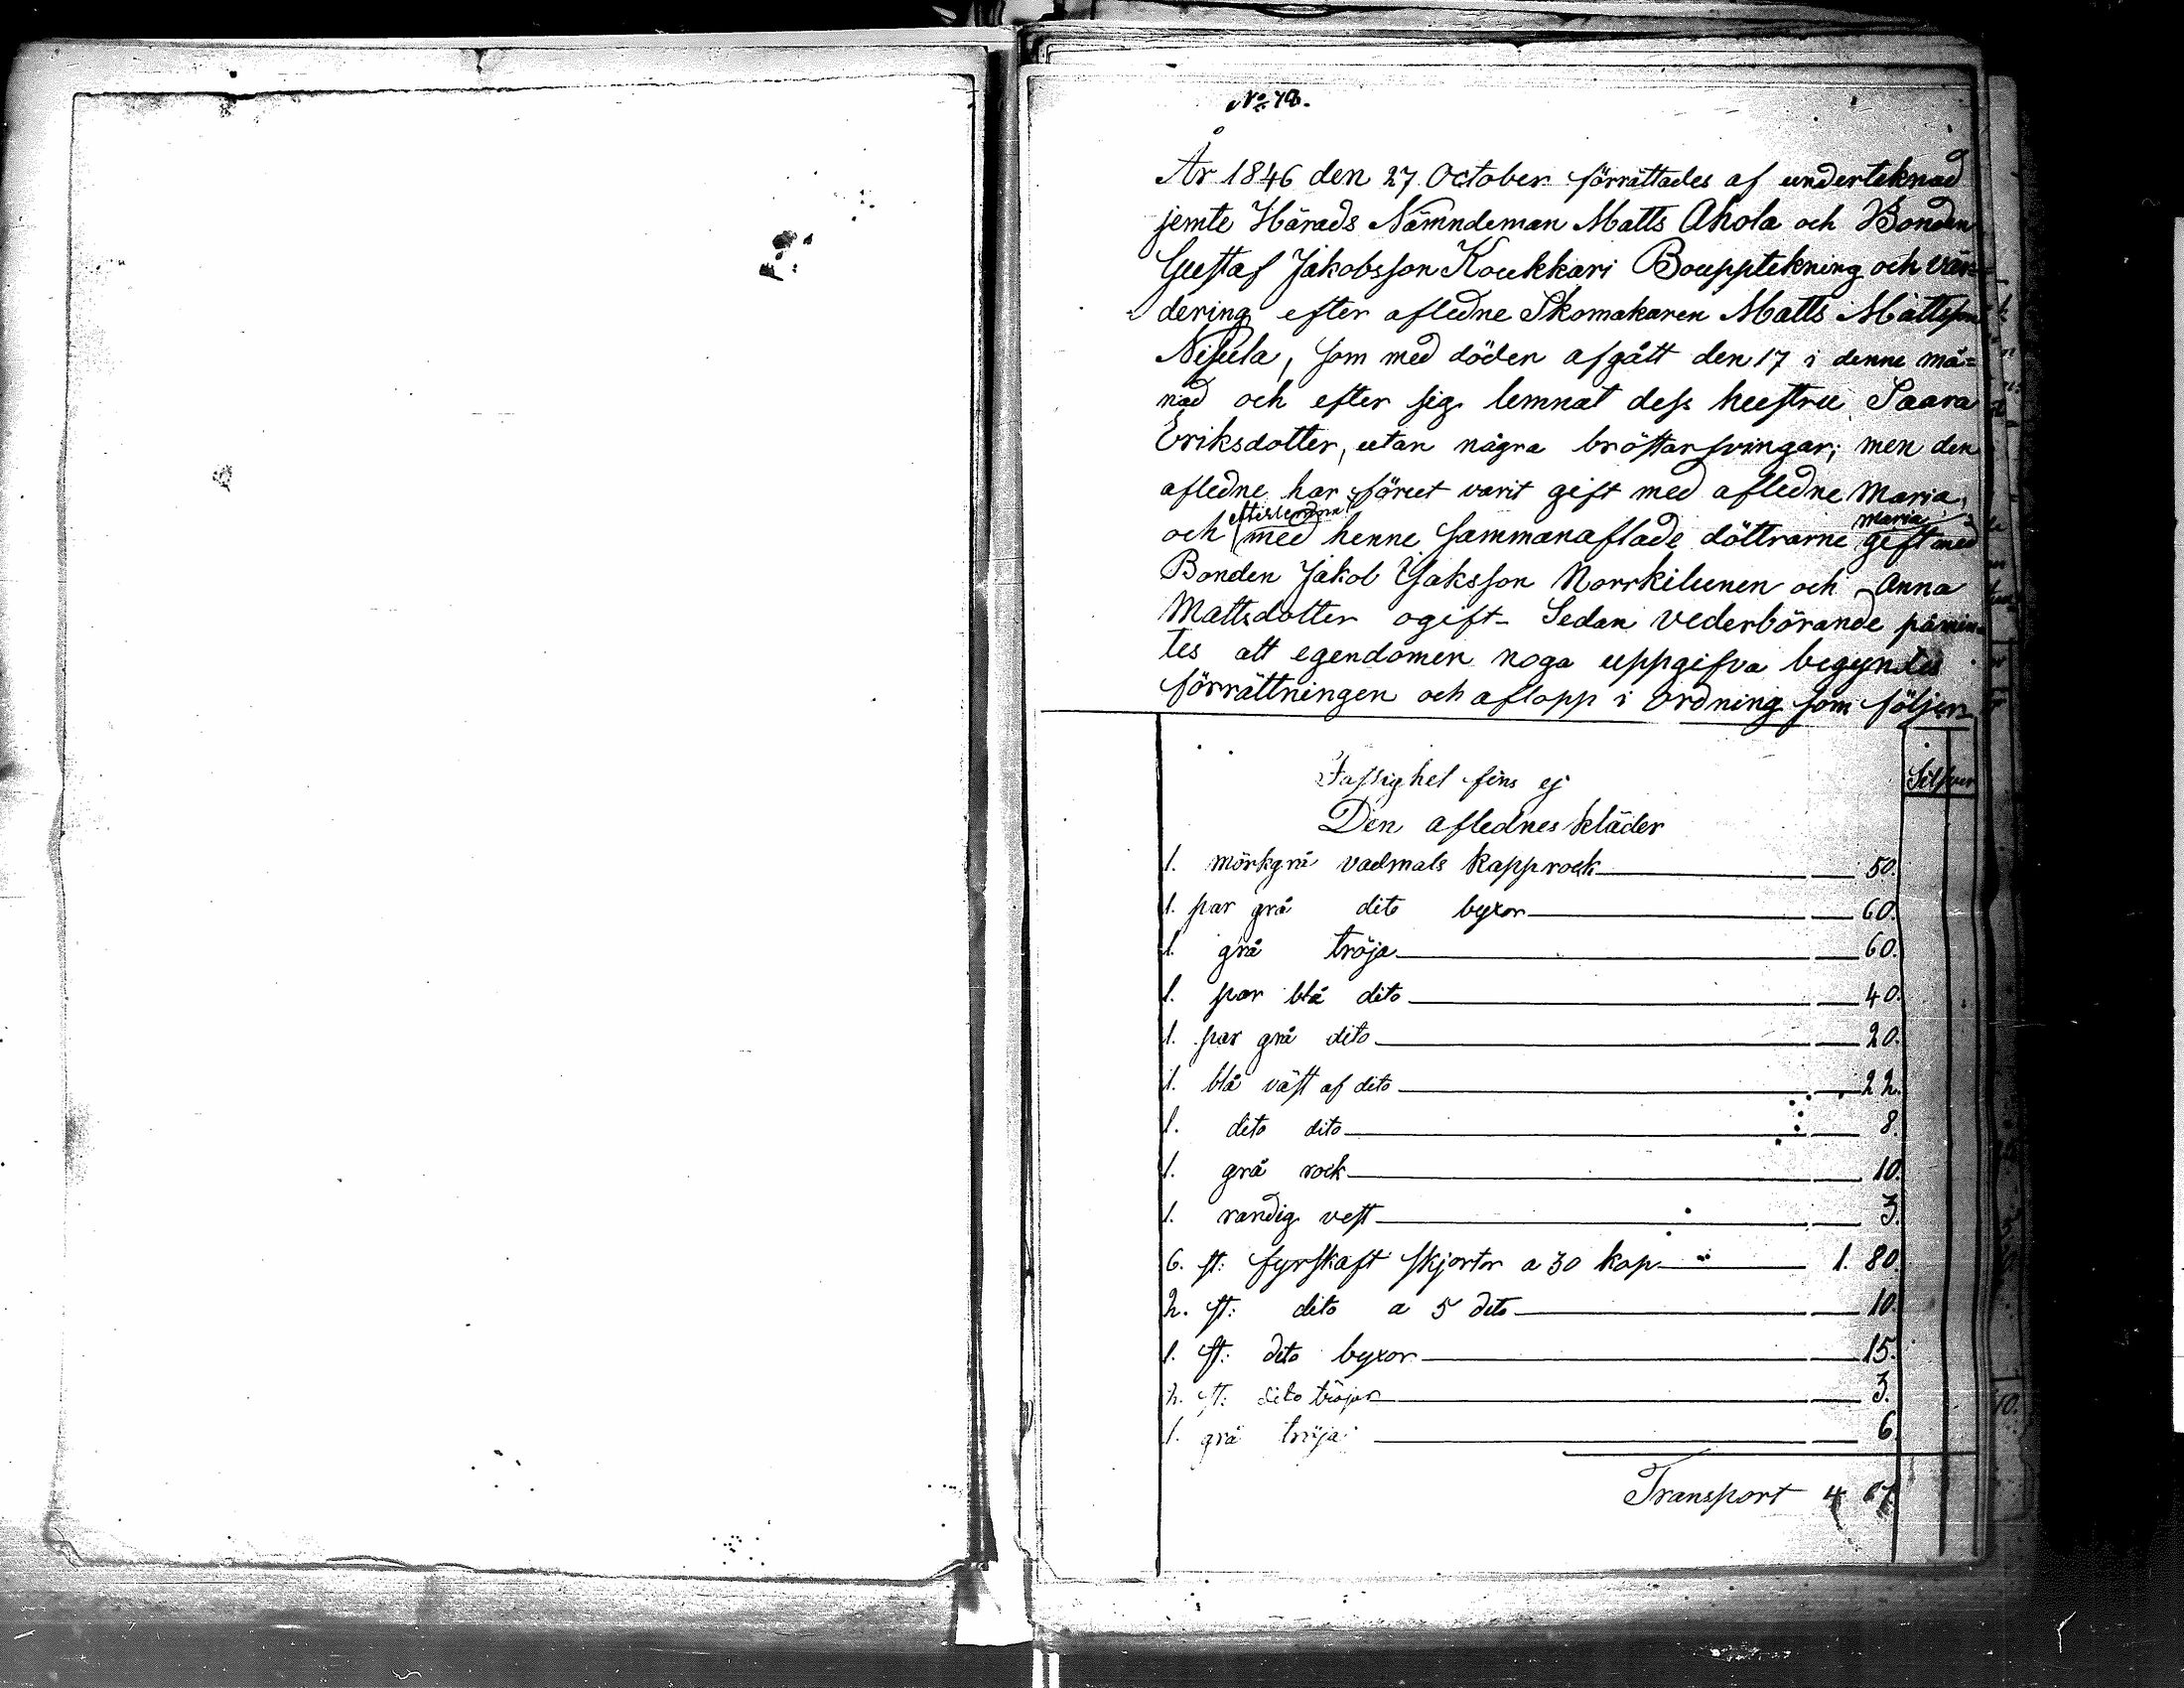 No 78.
År 1846 den 27 October förrättades af underteknad
jemte Härads Nämndeman Matts Ahola och Bonden
Gustaf Jakobsson Koukkari Boupptekning och vär=
dering efter afledne Skomakaren Matts Mattsson
Nisula, som med döden afgått den 17 i denne må=
nad och efter sig lemnat dess hustru Saara
Eriksdotter, utan några bröstarfvingar; men den
afledne har förut varit gift med afledne Maria,
och efterlemnat med henne sammanaflade döttrarne Maria gift med
Bonden Jakob Isaksson Norrkilunen och Anna
Mattsdotter ogift- Sedan vederbörande påmin=
tes att egendomen noga uppgifva begyntes
förrättningen och aflopp i ordning som följer
Silfver
Fastighet fins ej
Den aflednes kläder
1. mörkgrå vadmals kapprock 50.
1. par grå dito byxor 60.
1. grå tröja 60.
1. par blå dito 40.
1. par grå dito 20.
1. blå väst af dito 22.
1. dito dito 8.
1. grå rock 10.
1. randig vest 3.
6. st: fyrskaft skjortor a 30 kop 1. 80.
2. st: dito a 5 dito 10.
1. st: dito byxor 15.
2. st: dito tröjor 3.
1. grå tröja 6.
Transport 4